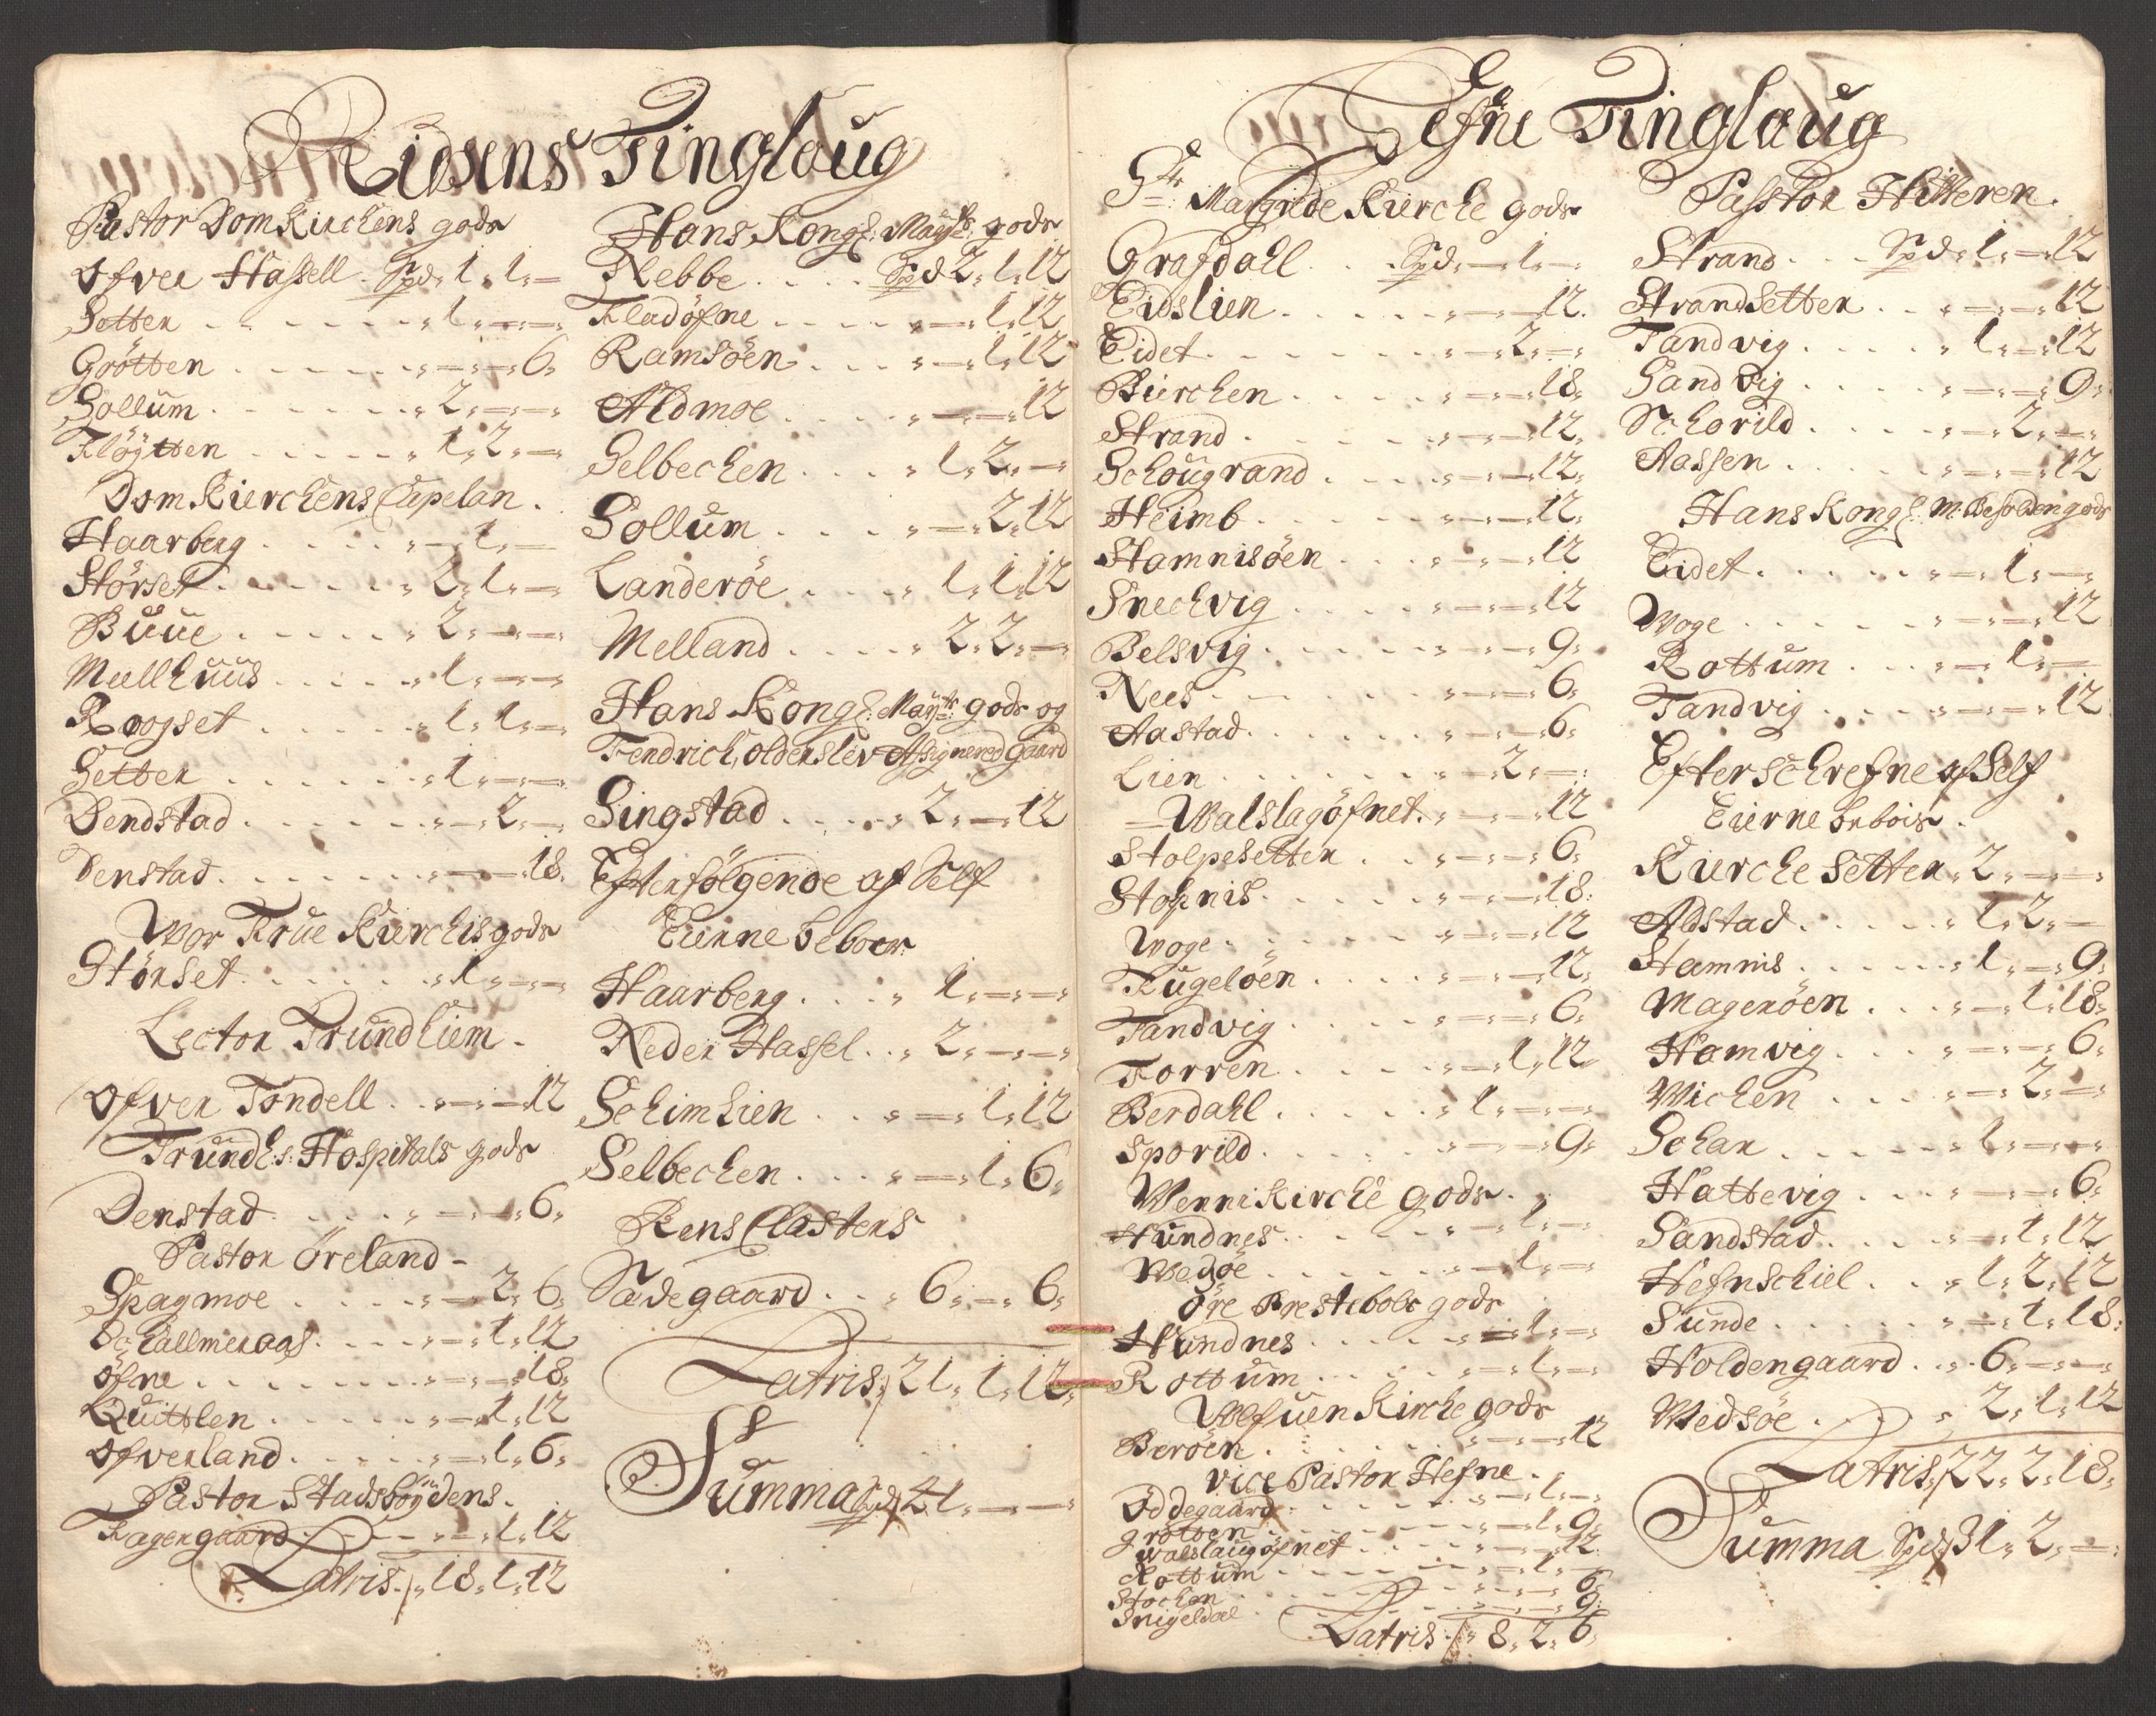 Ridsens Tinglaug
Pastor DomKirchens gods
Ofver Hassell . Spd. 1. 1. —
Setter . . . . . . 1. — —
Grötten . . . . . . — — 6.
Sollum . . . . . . 2. — —
Flöÿtten . . . . . 1. 2. —
DomKierchens Capelan.
Haarberg . . . . . — 1. —
Störset . . . . . 2. 1. —
Buue . . . . . 2. — —
Mællhuus . . . . . 1. — —
Rogset . . . . . 1. 1. —
Setter . . . . . 1. — —
Dendstad . . . . . — 2. —
Denstad . . . . . — — 18.
Wor Frue Kierchis gods
Störset . . . . . 1. — —
Lector Trundhiem.
Ofver Tondell . . — — 12
Trundh:s: Hospitals gods
Denstad . . . . — — 6.
Pastor Öreland –
Spagmoe . . . . — 2. 6.
Schallmeraas . . . — 1. 12
öfne . . . . . — — 18.
Quitlen . . . . . — 1. 12
Ofverland . . . . — 1. 6.
Pastor Stadsboÿdens.
Fagergaard . . . — 1. 12
Latris . 18. 1. 12
Hans Kongl: Maÿts: gods
Nebbe . . . . Spd 2. 1. 12
Fladöfne . . . . — 1. 12
Ramsöen . . . — 1. 12
Aldmoe . . . . — — 12
Selbechen . . . . 1. 2. —
Sollum . . . . — 2. 12
Landeröe . . . 1. 1. 12
Melland . . . . 2. 2. —
Hans Kongl: Maÿts: gods og
Fendrich, Olderslev Assignered gaard
Singstad . . . . 2. — 12
Efterfölgende af Self
Eierne beboer
Haarberg . . . 1. — —
Neder Hassel . . 2. — —
Schimlien . . . — 1. 12
Selbechen . . . — 1. 6.
Rens Clasters
Sædegaard . . . 6. — 6.
Latris. 21. 1. 12.
Summa Spd 41. — —
Hefne Tinglaug
Ste: Margrede Kierche gods
Grafdahl . . . Spd. — 1. —
Eidslien . . . . . — — 12.
Eidet . . . . . . — 2. —
Bierchen . . . . . — — 18.
Strand . . . . . — — 12.
Schougrand . . . . — — 12.
Heimb . . . . . — — 12.
Stamnisöen . . . . — — 12
Snechvig . . . . — — 12
Belsvig . . . . . — — 9.
Nees . . . . . — — 6.
Aastad . . . . . — — 6.
Lien . . . . . . — 2. —
Walslagöfnet . — — 12
Stolpesetter . . — — 6.
Stofnis . . . . . — — 18.
Woge . . . . . — — 12
Fugelöen . . . . — — 12.
Tandvig . . . . — — 6.
Forren . . . . . — 1. 12
Berdahl . . . . . 1. — —
Sporild . . . . . — — 9.
Wenni Kirche gods.
Hundnes . . . . — 1. —
Wedöe . . . . . — 1. —
öre Prestebols gods
Hundnes . . . . — 1. —
Rottum . . . . — 1. —
Ulfuen Kirche gods
Beröen . . . . . — — 12
vice Pastor Hefne.
Oddegaard . . . . — 1. —
grötben . . . . . — 1. 9.
Walslaugöfnet . . . — — 12.
Rottum . . . . . — 1. —
Stochen . . . . . — — 6.
Snigeldal . . . . — — 9.
Latris . 8. 2. 6.
Pastor Hitteren.
Strand . . . Spd. 1. — 12
Strandsetter . . — — 12
Tandvig . . . . 1. — 12
Sandvig . . . . . — — 9.
Schorild . . . . — 2. —
Aassen . . . . . — — 12
Hans Kongl: M: Besolden gods
Eidet . . . . . — 1. —
Woge . . . . . — — 12
Rottum . . . — 1. —
Tandvig . . . . — — 12
Efterschrefne af Self
Eierne bebois.
Kierche Setter . 2. — —
Aldstad . . . . . 1. 2. —
Stamnis . . . . . 1. — 9.
Mageröen . . . — 1. 18.
Hamvig . . . . — — 6.
Wichen . . . . — 2. —
Schar . . . . . 1. — —
Hattevig . . . . — — 6.
Sandstad . . . . — 1. 12
Hefnschiel . . . 1. 2. 12
Sunde . . . . . — 1. 18.
Holdengaard . . . 6. — —
Wedsöe . . . . 2. 1. 12
Latris. 22. 2. 18.
Summa Spd 31. 2. —